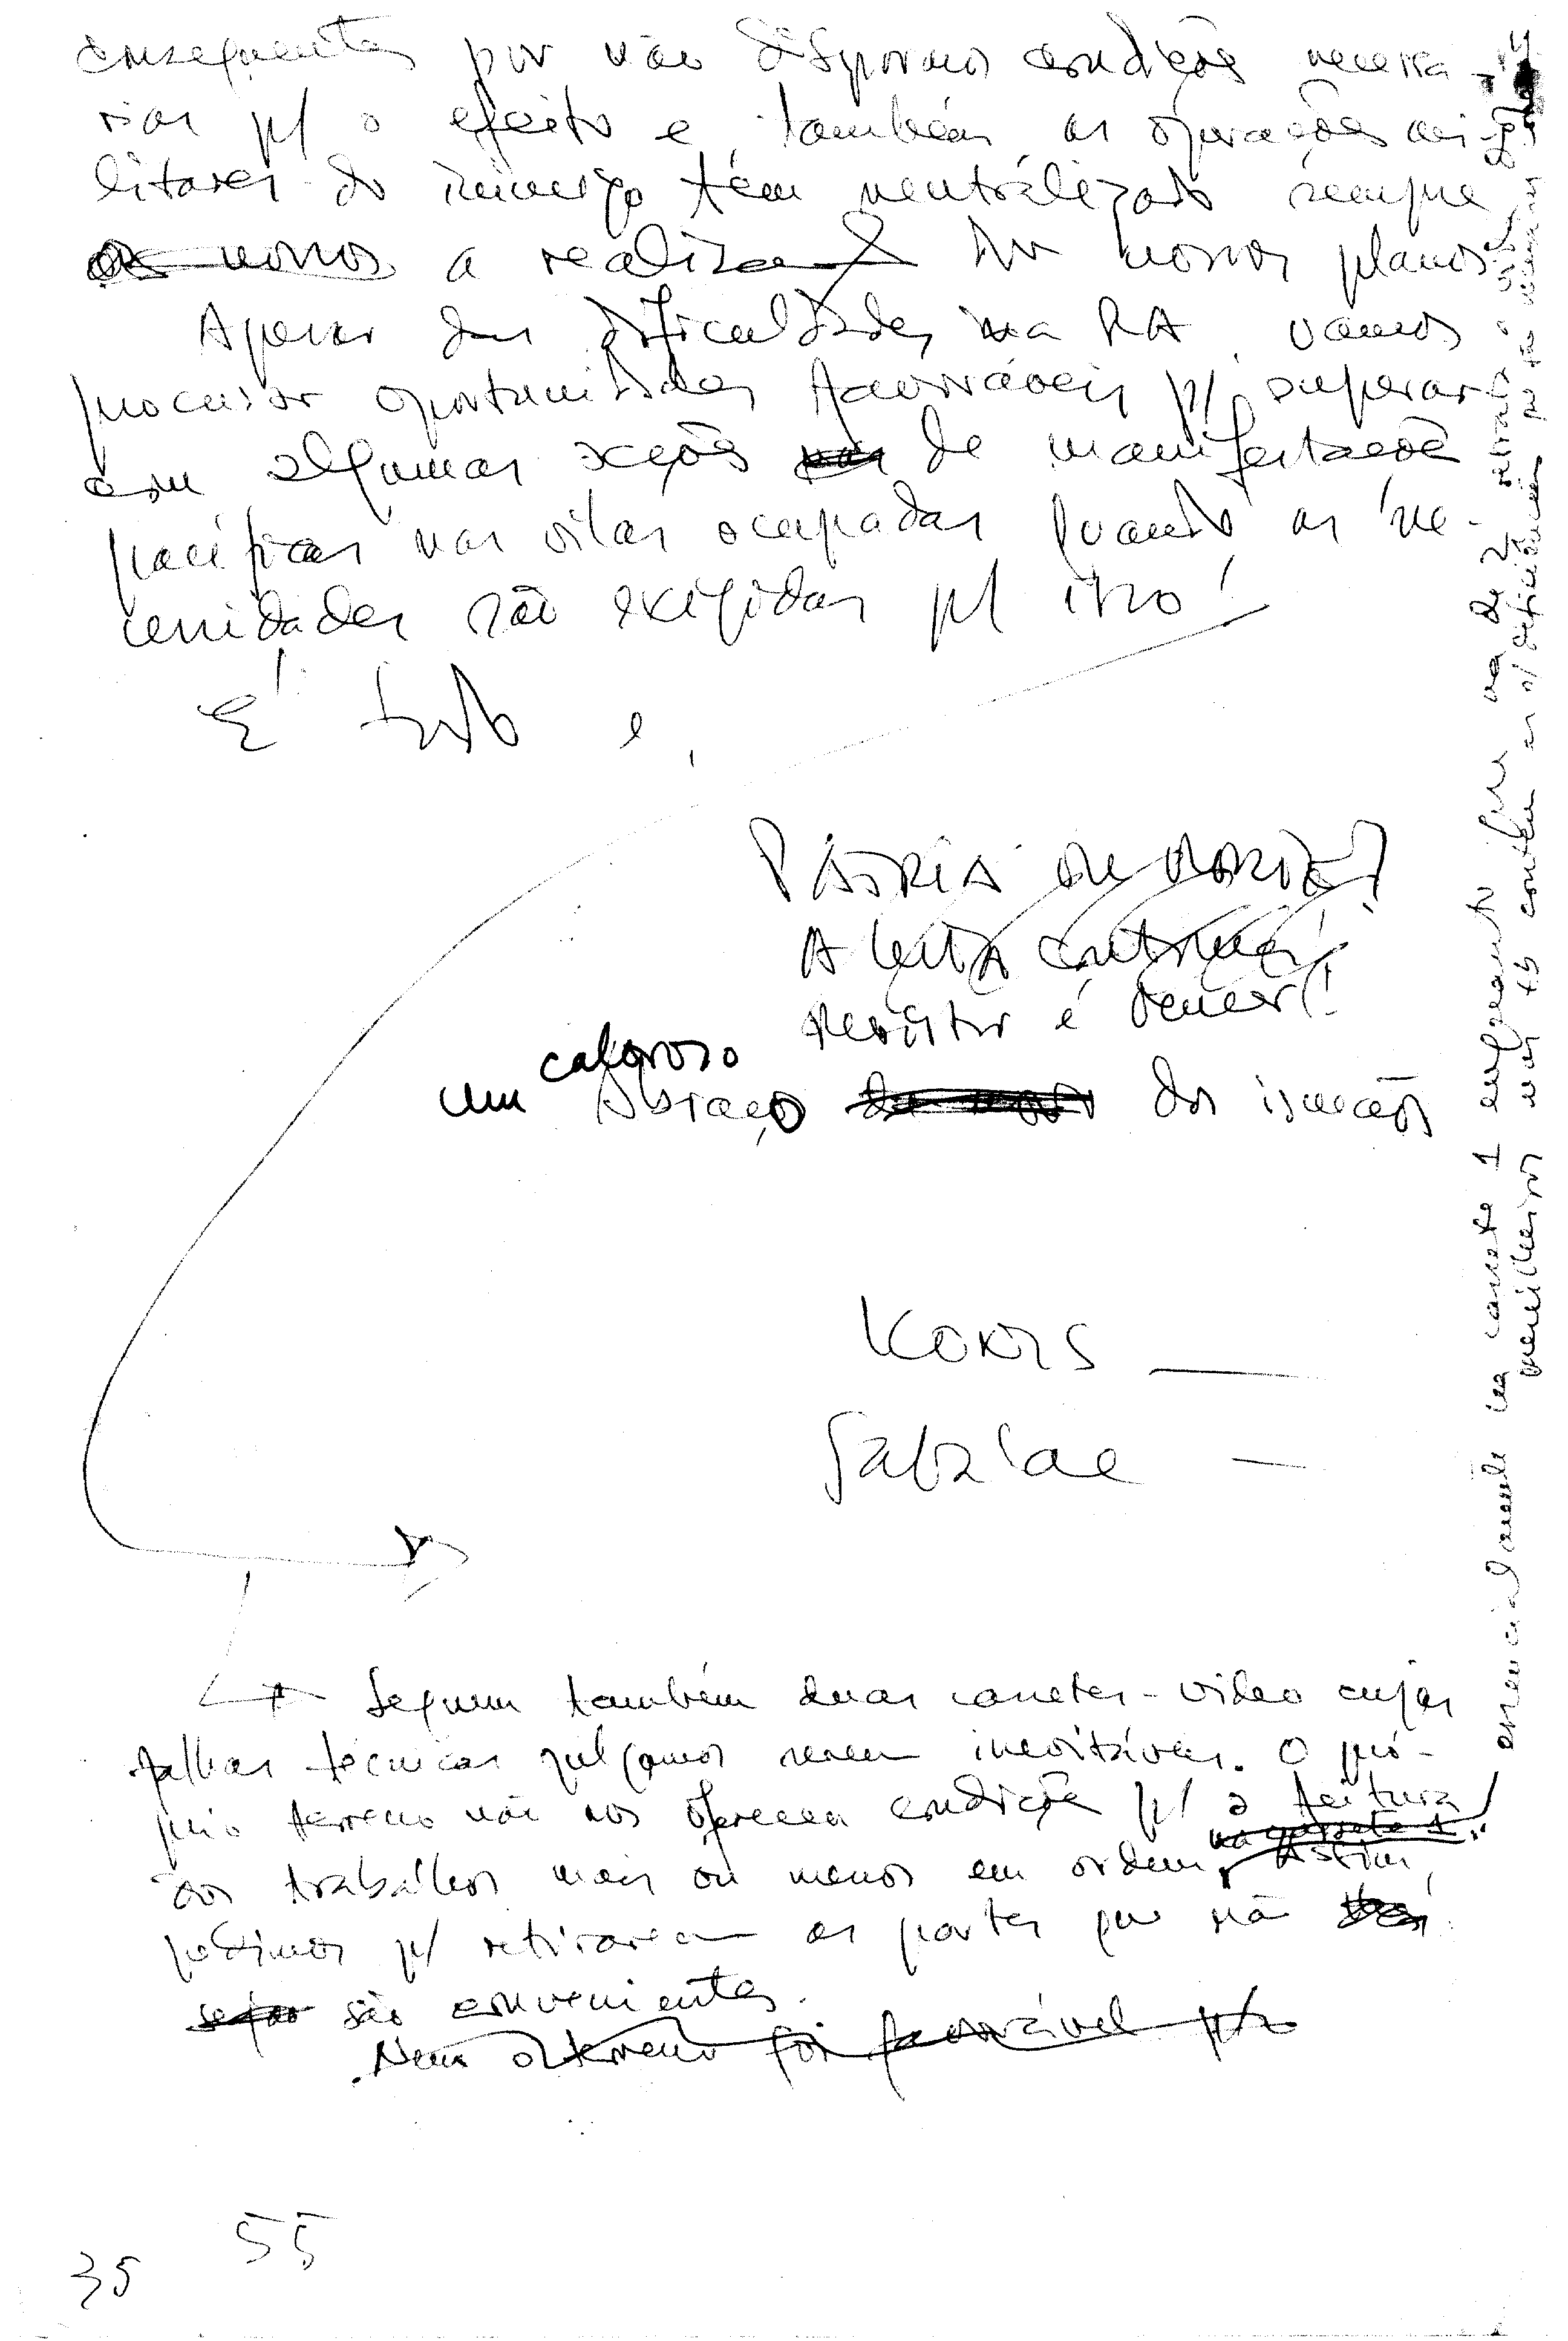 consequentes por não dispormos condições necessá-
rias p/ o efeito e, também, as operações mi-
litares do inimigo têm neutralizado sempre
os nossos a realização dos nossos planos
Apesar das dificuldades na RA, vamos
procurar oportunidades favoráveis p/ superar
com algumas acções de manifestações
pacíficas nas vilas ocupadas quando as ne-
cessidades são exigidas p/ isso!
É tudo e,
PÁTRIA OU MORTE!
A luta continua!
Resistir é vencer!
um caloroso Abraço dos irmãos
Konis
Sabalae
Seguem também duas cassetes-video cujas
falhas técnicas julgamos serem inevitáveis. O pró-
prio terreno não nos oferecem condições p/ a feitura
dos trabalhos mais ou menos em ordem, na cassete 1. Assim,
pedimos p/ retirarem as partes que não
sejam são convenientes.
Nem o terreno foi favorável p/a
essencialmente na cassete 1 enquanto que na de 2, devido o
mas tb contém as s/ deficiências
55
35